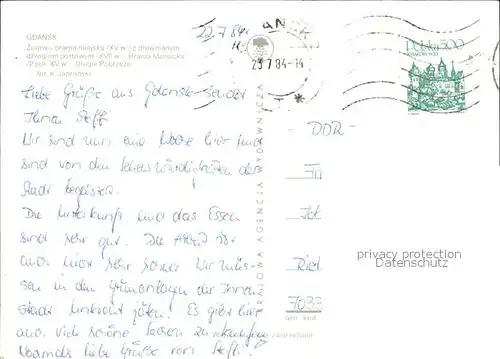 GDAŃSK
Żuraw - brama miejska /XV w./ z drewnianym
dźwigiem portowym /XVII w./. Brama Mariacka
/2 poł. XV w./. Długie Pobrzeże
fot. K. Jabłoński
22.7.84
GDAŃSK
23.7.84-14
Polska 500
Liebe Grüße aus Gdansk sendet
Ihnen Steff.
Wir sind nun eine Woche hier und
sind von den Sehenswürdigkeiten der
Stadt begeistert.
Die Unterkunft und das Essen
sind sehr gut. Die Arbeit ist
auch hier sehr schwer. Wir müs-
sen in den Grünanlagen der Innen-
stadt Unkraut jäten. Es gibt hier
auch viele schöne Sachen zu
Nochmals liebe Grüße von Steff.
KRAJOWA AGENCJA WYDAWNICZA
- DDR -
703
privacy protection
Datenschutz